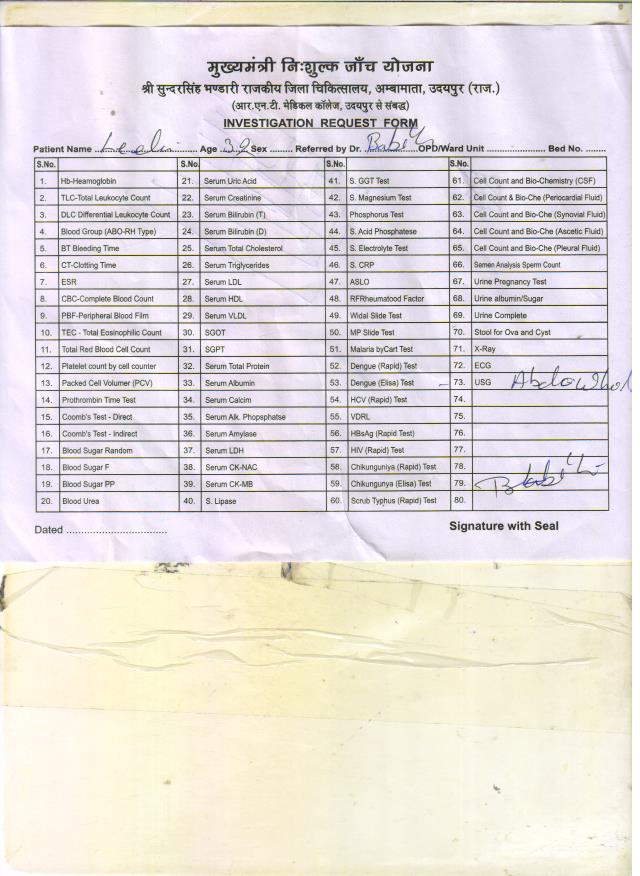 मुख्यमंत्री निःशुल्क जाँच योजना
श्री सुन्दरसिंह भण्डारी राजकीय जिला चिकित्सालय, अम्बामाता, उदयपुर (राज.)
(आर.एन.टी. मेडिकल कॉलेज, उदयपुर से संबद्ध)
INVESTIGATION REQUEST FORM
Patient Name .......... Age 32 Sex ......... Referred by Dr. .......... OPD/Ward Unit .................... Bed No. .......
S.No. S.No. S.No. S.No.
1. Hb-Heamoglobin 21. Serum Uric Acid 41. S. GGT Test 61. Cell Count and Bio-Chemistry (CSF)
2. TLC-Total Leukocyte Count 22. Serum Creatinine 42. S. Magnesium Test 62. Cell Count & Bio-Che (Periocardial Fluid)
3. DLC Differential Leukocyte Count 23. Serum Bilirubin (T) 43. Phosphorus Test 63. Cell Count and Bio-Che (Synovial Fluid)
4. Blood Group (ABO-RH Type) 24. Serum Bilirubin (D) 44. S. Acid Phosphatese 64. Cell Count and Bio-Che (Ascetic Fluid)
5. BT Bleeding Time 25. Serum Total Cholesterol 45. S. Electrolyte Test 65. Cell Count and Bio-Che (Pleural Fluid)
6. CT-Clotting Time 26. Serum Triglycerides 46. S. CRP 66. Semen Analysis Sperm Count
7. ESR 27. Serum LDL 47. ASLO 67. Urine Pregnancy Test
8. CBC-Complete Blood Count 28. Serum HDL 48. RFRheumatood Factor 68. Urine albumin/Sugar
9. PBF-Peripheral Blood Film 29. Serum VLDL 49. Widal Slide Test 69. Urine Complete
10. TEC - Total Eosinophilic Count 30. SGOT 50. MP Slide Test 70. Stool for Ova and Cyst
11. Total Red Blood Cell Count 31. SGPT 51. Malaria byCart Test 71. X-Ray
12. Platelet count by cell counter 32. Serum Total Protein 52. Dengue (Rapid) Test 72. ECG
13. Packed Cell Volumer (PCV) 33. Serum Albumin 53. Dengue (Elisa) Test 73. USG
14. Prothrombin Time Test 34. Serum Calcim 54. HCV (Rapid) Test 74.
15. Coomb's Test - Direct 35. Serum Alk. Phopsphatse 55. VDRL 75.
16. Coomb's Test - Indirect 36. Serum Amylase 56. HBsAg (Rapid Test) 76.
17. Blood Sugar Random 37. Serum LDH 57. HIV (Rapid) Test 77.
18. Blood Sugar F 38. Serum CK-NAC 58. Chikunguniya (Rapid) Test 78.
19. Blood Sugar PP 39. Serum CK-MB 59. Chikungunya (Elisa) Test 79.
20. Blood Urea 40. S. Lipase 60. Scrub Typhus (Rapid) Test 80.
Dated ................................ Signature with Seal